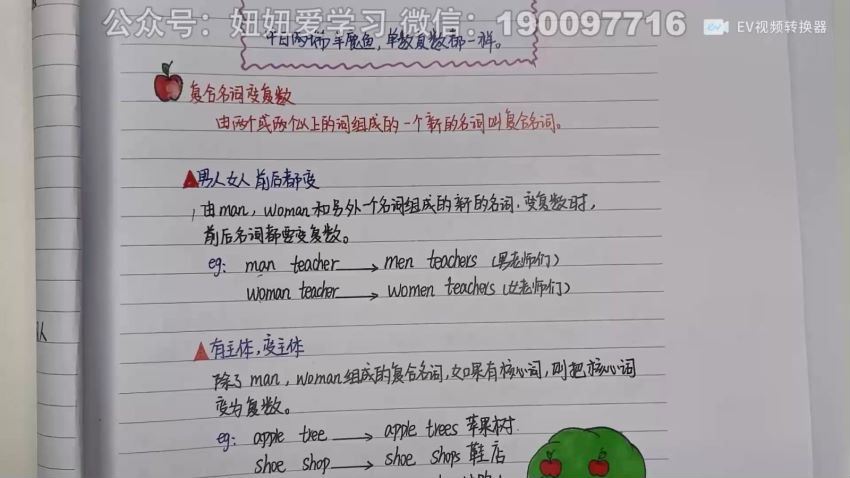 公众号：妞妞爱学习 微信：190097716
EV视频转换器
中日两绵羊鹿鱼，单数复数都一样。
复合名词变复数
由两个或两个以上的词组成的一个新的名词叫复合名词。
男人女人 前后都变
由man，woman和另外一个名词组成的新的名词，变复数时，
前后名词都要变复数。
eg: man teacher → men teachers (男老师们)
woman teacher → women teachers (女老师们)
有主体，变主体
除了man，woman组成的复合名词，如果有核心词，则把核心词
变为复数。
eg: apple tree → apple trees 苹果树
shoe shop → shoe shops 鞋店